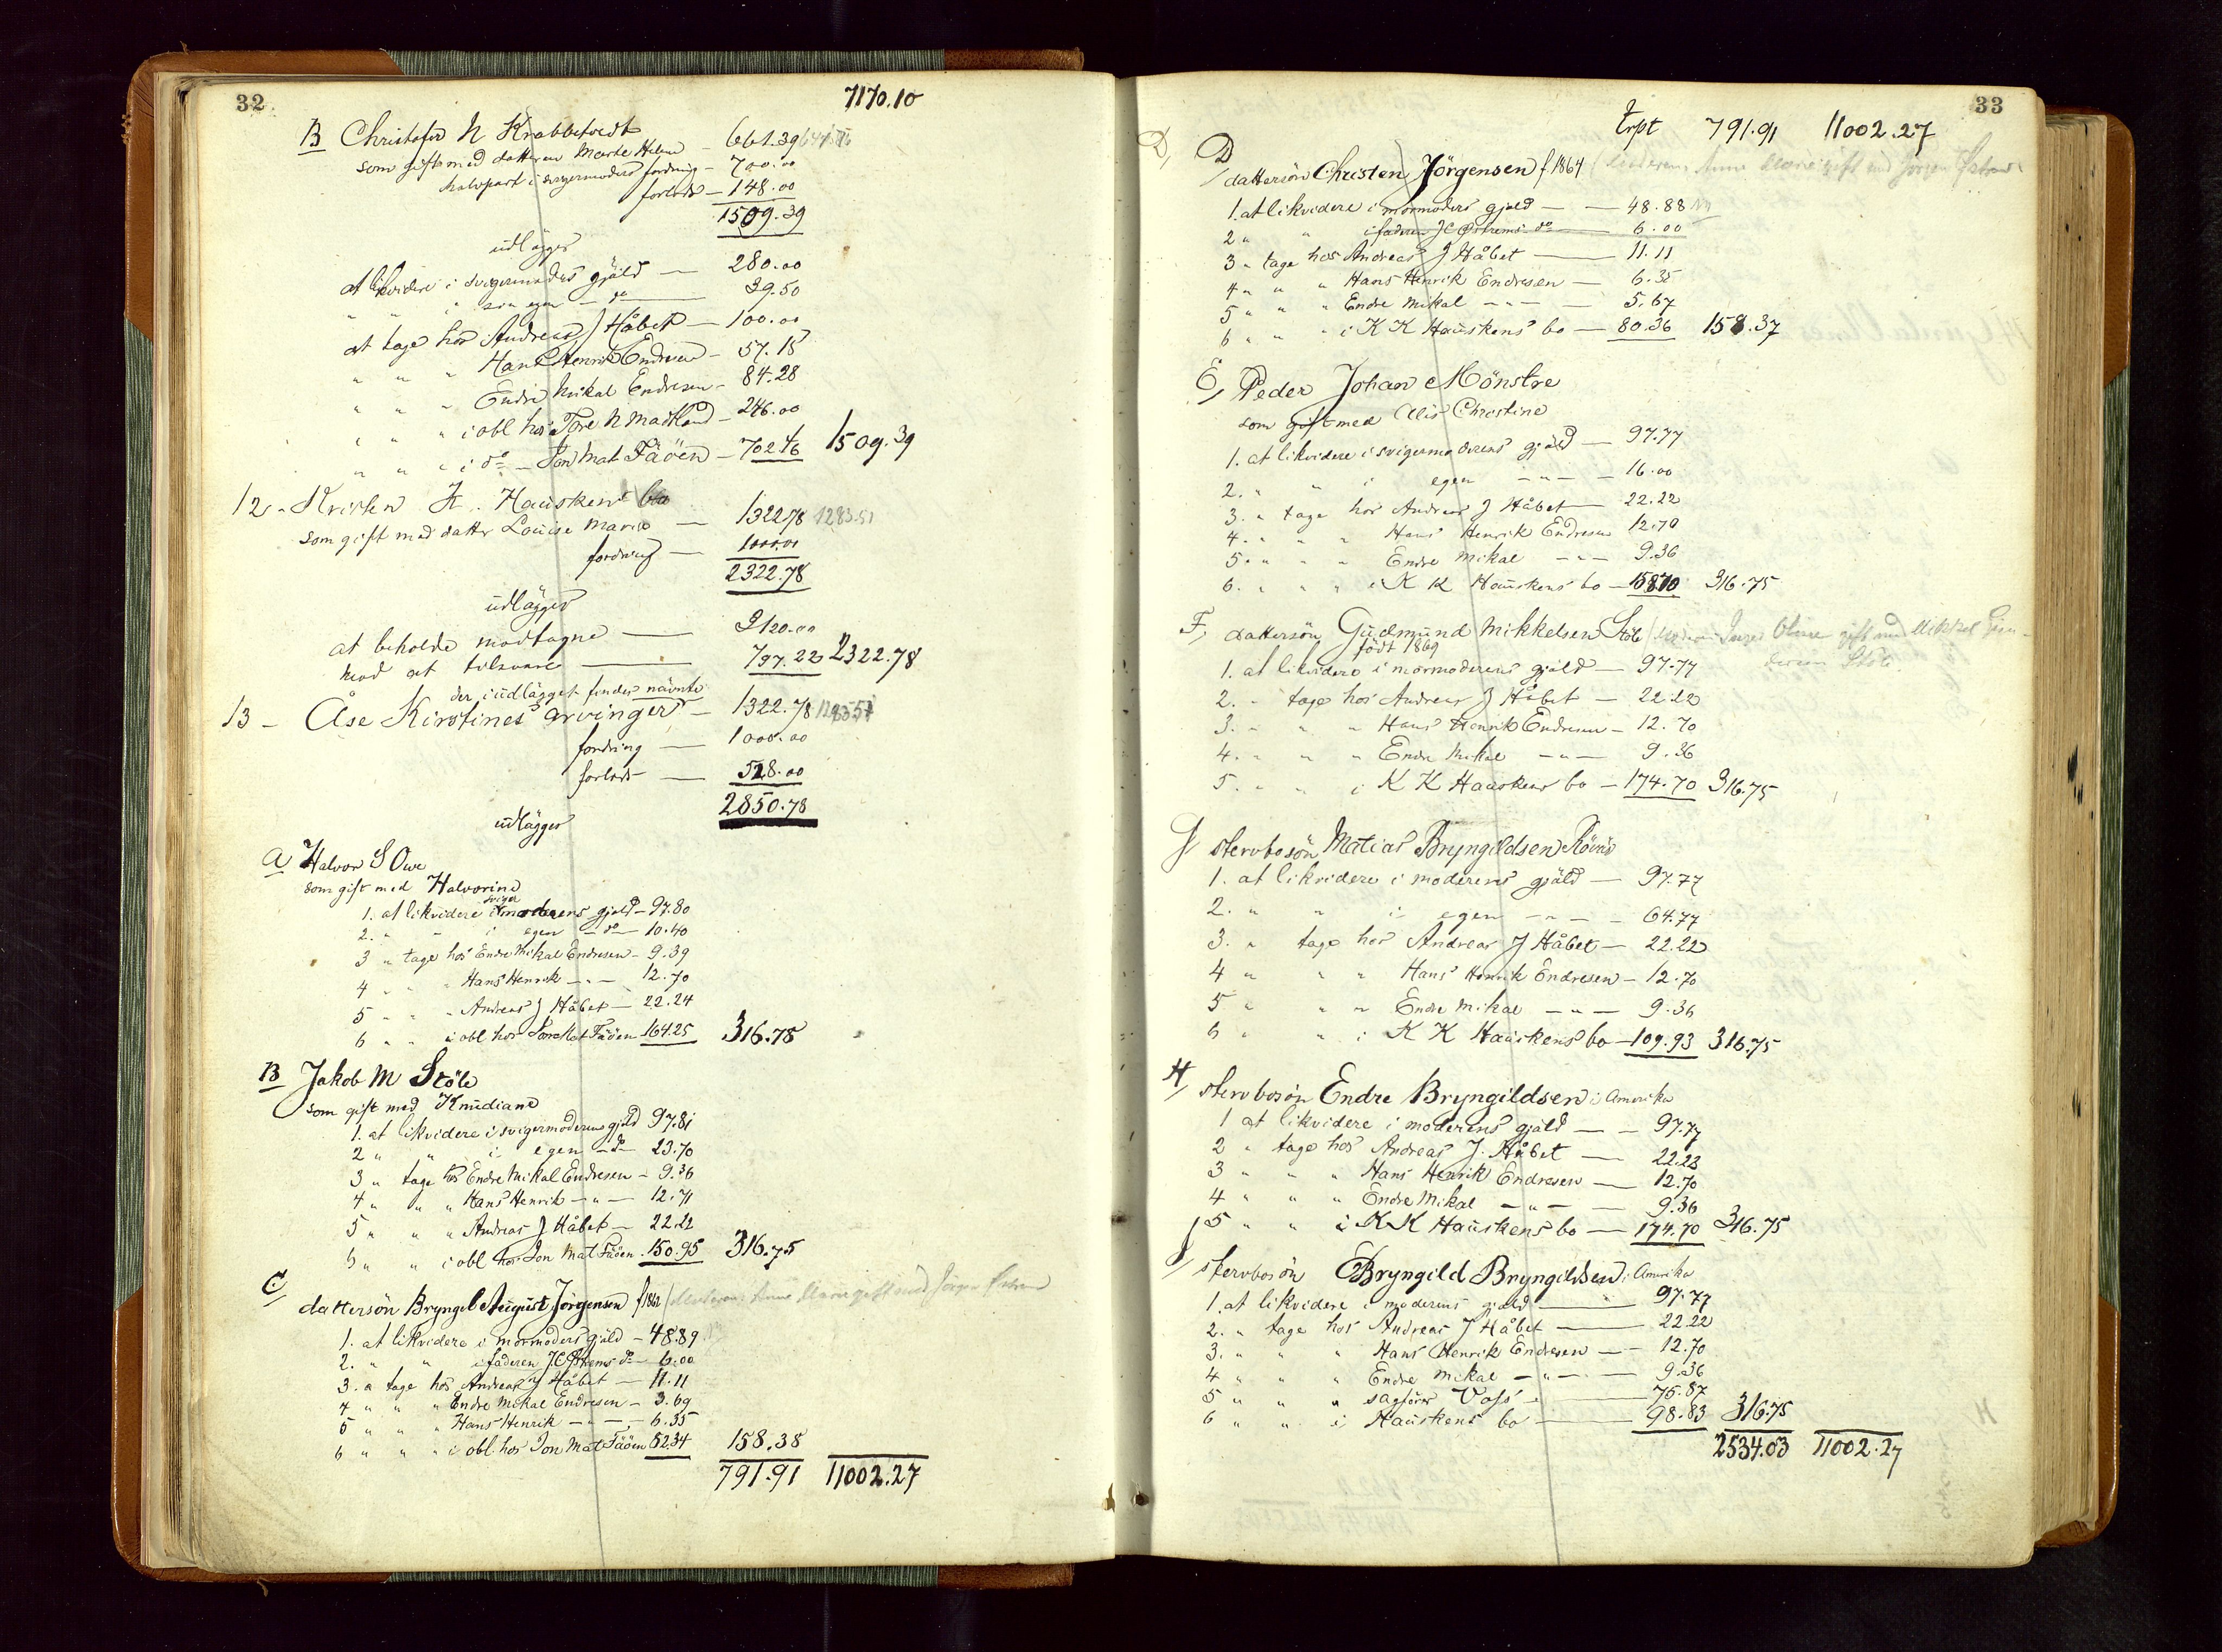 32
7170.10
B Christofer N Krabbetvedt
som gift med datteren Marte Helene - 661.39
halvpart i svigermoders fordring - 700.00
forlods - 148.00
1509.39
udlägges
at likvidere i svigermoders gjäld - 280.00
" " " sin egen - do - 39.50
at tage hos Andreas J Håbet - 100.00
" " " Hans Henrik Endresen - 57.15
" " " Endre Mikal Endresen - 84.28
" " " i obl hos Tore N Madland - 246.00
" " " i do - Jon Mat. Fäöen - 702.46 1509.39
12 - Kristen K. Hauskens bo
som gift med datter Louise Marie - 1322.78 1283.51
fordring - 1000.00
2322.78
udlägges
at beholde modtagne - 3120.00
mod at tilsvare - 797.22 2322.78
der i udlägget findes nävnte
13 - Åse Kirstines arvinger - 1322.78 1283.51
fordring - 1000.00
forlods - 528.00
2850.78
udlägges
a Halvor S Owe
som gift med Halvorine
sviger
1. at likvidere i moderens gjeld - 97.80
2. " " i egen - do - 10.40
3 " tage hos Endre Mikal Endresen - 9.39
4 " " " Hans Henrik - " - 12.70
5 " " " Andreas J Håbet - 22.24
6 " " i obl hos Jon Mat Fäöen 164.25 316.78
B Jakob M Stöle
som gift med Knudiane
1. at likvidere i svigermoderens gjeld 97.81
2 " " i egen - do - 23.70
3 " tage hos Endre Mikal Endresen - 9.36
4 " " " Hans Henrik - " - 12.71
5 " " " Andreas J Håbet - 22.22
6 " " i obl hos Jon Mat Fäöen 150.95 316.75
C/ dattersön Bryngel August Jörgensen f 1862 (Moderen Anne Marie gift med Jörgen
1. at likvidere i mormoders gjäld - 48.89
2. " " i faderen JC Östrems do - 6.00
3. " tage hos Andreas J Håbet - 11.11
4 " " " Endre Mikal Endresen - 3.69
5 " " " Hans Henrik - " - 6.35
6 " " " i obl. hos Jon Mat Fäöen 82.34 158.38
791.91 11002.27
33
Trpt 791.91 11002.27
D,
D/ dattersön Christen Jörgensen f 1864 (Moderen Anne Marie gift med Jörgen
1. at likvidere i mormoders gjeld - 48.88
2 " " i faderen JC Östrems do - 6.00
3 " tage hos Andreas J Håbet - 11.11
4 " " " Hans Henrik Endresen - 6.35
5 " " " Endre Mikal - " - 5.67
6 " " " i K K Hauskens bo - 80.36 158.37
E, Peder Johan Mönstre
som gift med Christine
1. at likvidere i svigermoderens gjäld - 97.77
2. " " i egen - " - 16.00
3. " tage hos Andreas J Håbet - 22.22
4. " " " Hans Henrik Endresen 12.70
5 " " " Endre Mikal - " - 9.36
6. " " " i K K Hauskens bo - 158.70 316.75
F, dattersön Gudmund Mikkelsen Stöle (Moderen Inger Oline gift med Mikkel Gum-
födt 1869
dersen Stöle
1. at likvidere i mormoderens gjäld - 97.77
2. " tage hos Andreas J Håbet - 22.22
3. " " " Hans Henrik Endresen - 12.70
4. " " " Endre Mikal - " - 9.36
5. " " i K K Hauskens bo - 174.70 316.75
G/ stervbosön Matias Bryngildsen Röväs
1. at likvidere i moderens gjäld - 97.77
2. " " i egen - " - 64.77
3. " tage hos Andreas J Håbet - 22.22
4 " " " Hans Henrik Endresen - 12.70
5 " " " Endre Mikal - " - 9.36
6 " " i K K Hauskens bo - 109.93 316.75
H/ stervbosön Endre Bryngildsen i Amerika
1 at likvidere i moderens gjäld - 97.77
2 " tage hos Andreas J. Håbet - 22.22
3 " " " Hans Henrik Endresen - 12.70
4 " " " Endre Mikal - " - 9.36
5 " " i K K Hauskens bo - 174.70 316.75
I/ stervbosön Bryngild Bryngildsen i Amerika
1. at likvidere i moderens gjäld - 97.77
2. " tage hos Andreas J Håbet - 22.22
3. " " " Hans Henrik Endresen - 12.70
4 " " " Endre Mikal - " - 9.36
5 " " " sagförer Voss - 75.87
6 " " i Hauskens bo - 98.83 316.75
2534.03 11002.27